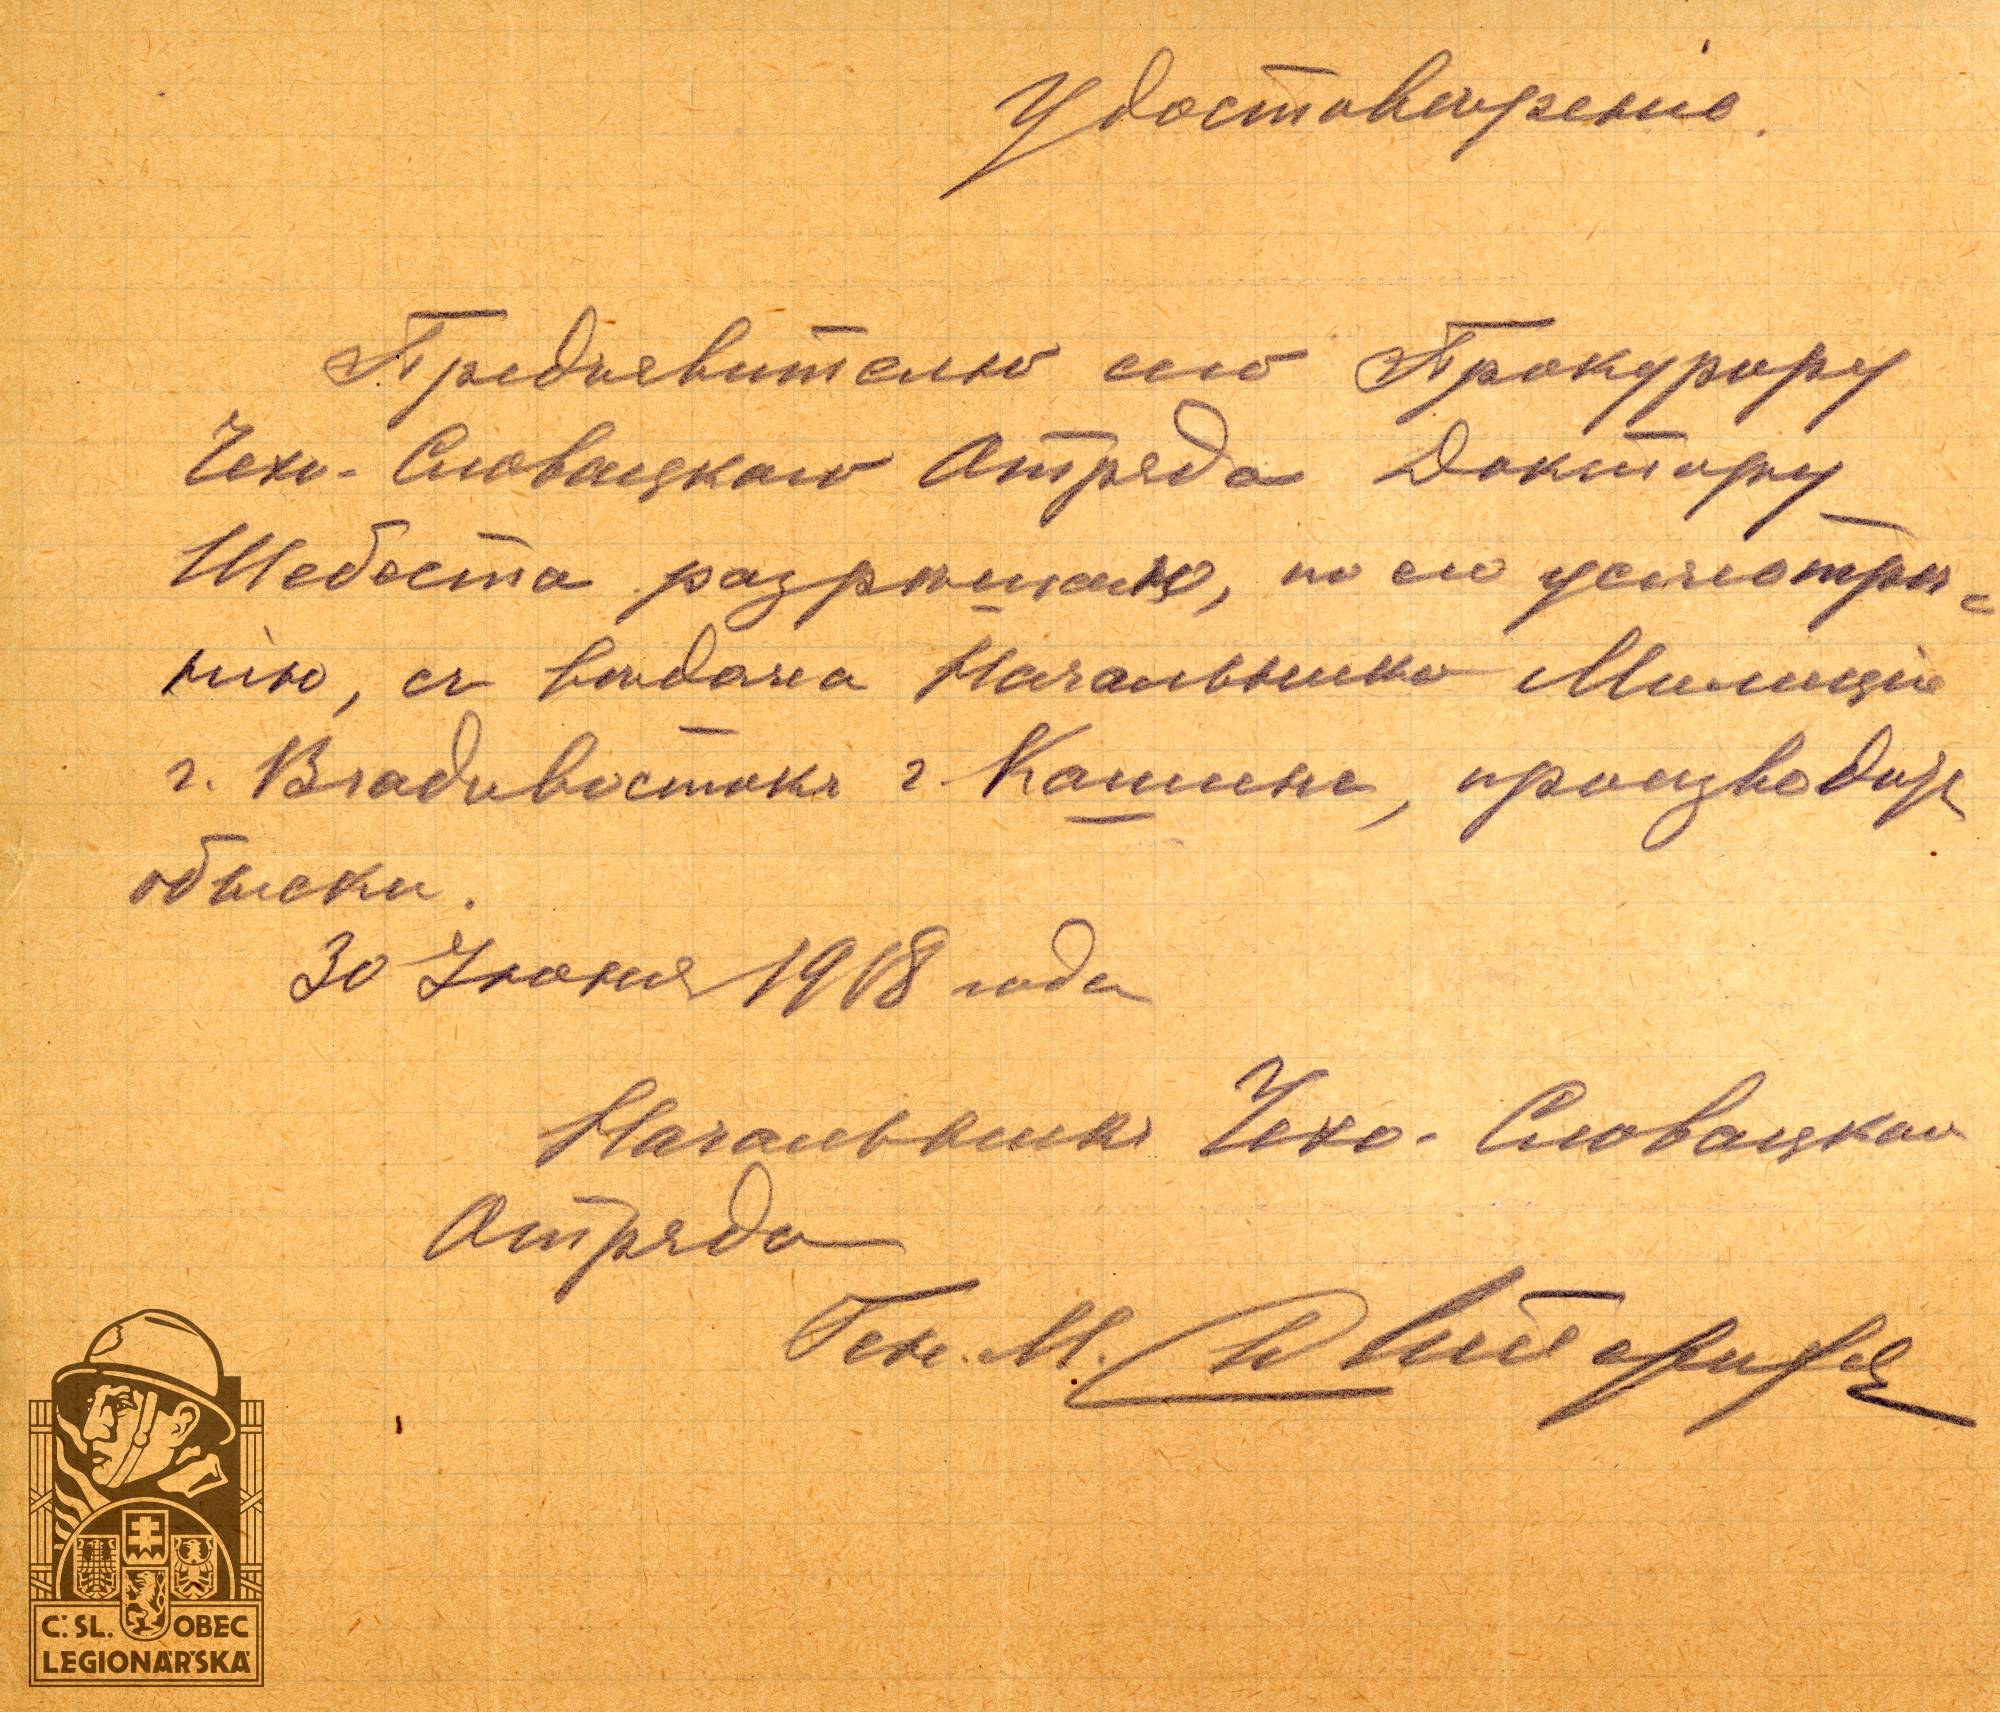 Удостовѣренiе.
Предъявителю сего Прокурору
Чехо-Словацкаго Отряда Доктору
Шебеста разрѣшаю, по его усмотрѣ-
нiю, съ вѣдома Начальника Милицiи
г. Владивостокъ г. производить
обыски.
30 Iюня 1918 года
Начальникъ Чехо-Словацкаго
Отряда
Ген. М. Дитерихсъ
Č. SL. OBEC
LEGIONÁŘSKÁ